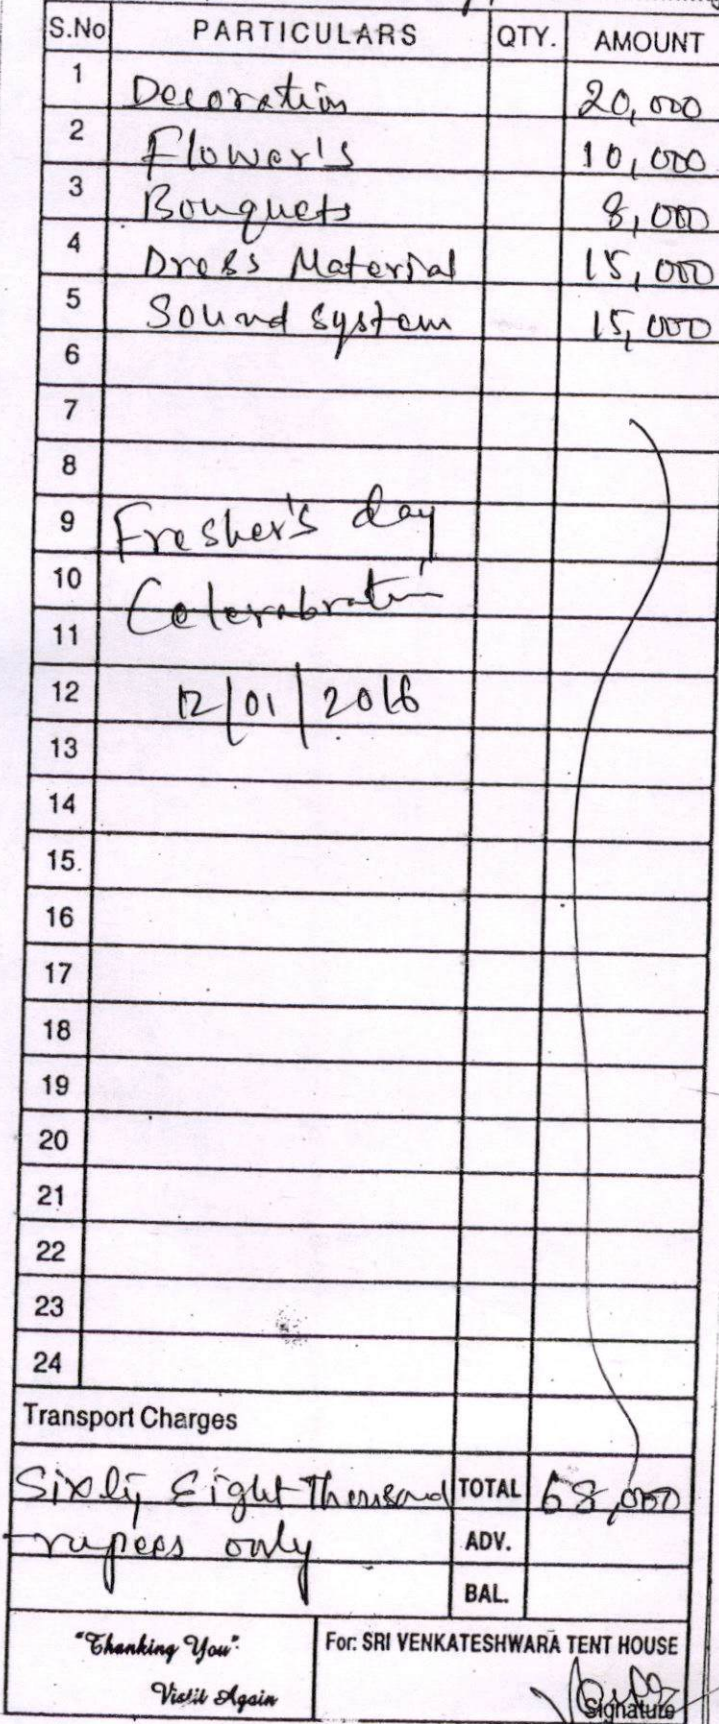 S.No PARTICULARS QTY. AMOUNT
1 Decoration 20,000
2 Flower's 10,000
3 Bouquets 8,000
4 Dress Material 15,000
5 Sound system 15,000
6
7
8
9 Fresher's day
10 Celerabration
11
12 12/01/2016
13
14
15.
16
17
18
19
20
21
22
23
24
Transport Charges
Sixty Eight Thousand TOTAL 68,000
rupees only ADV.
BAL.
"Thanking You" For: SRI VENKATESHWARA TENT HOUSE
Vistit Again Signature